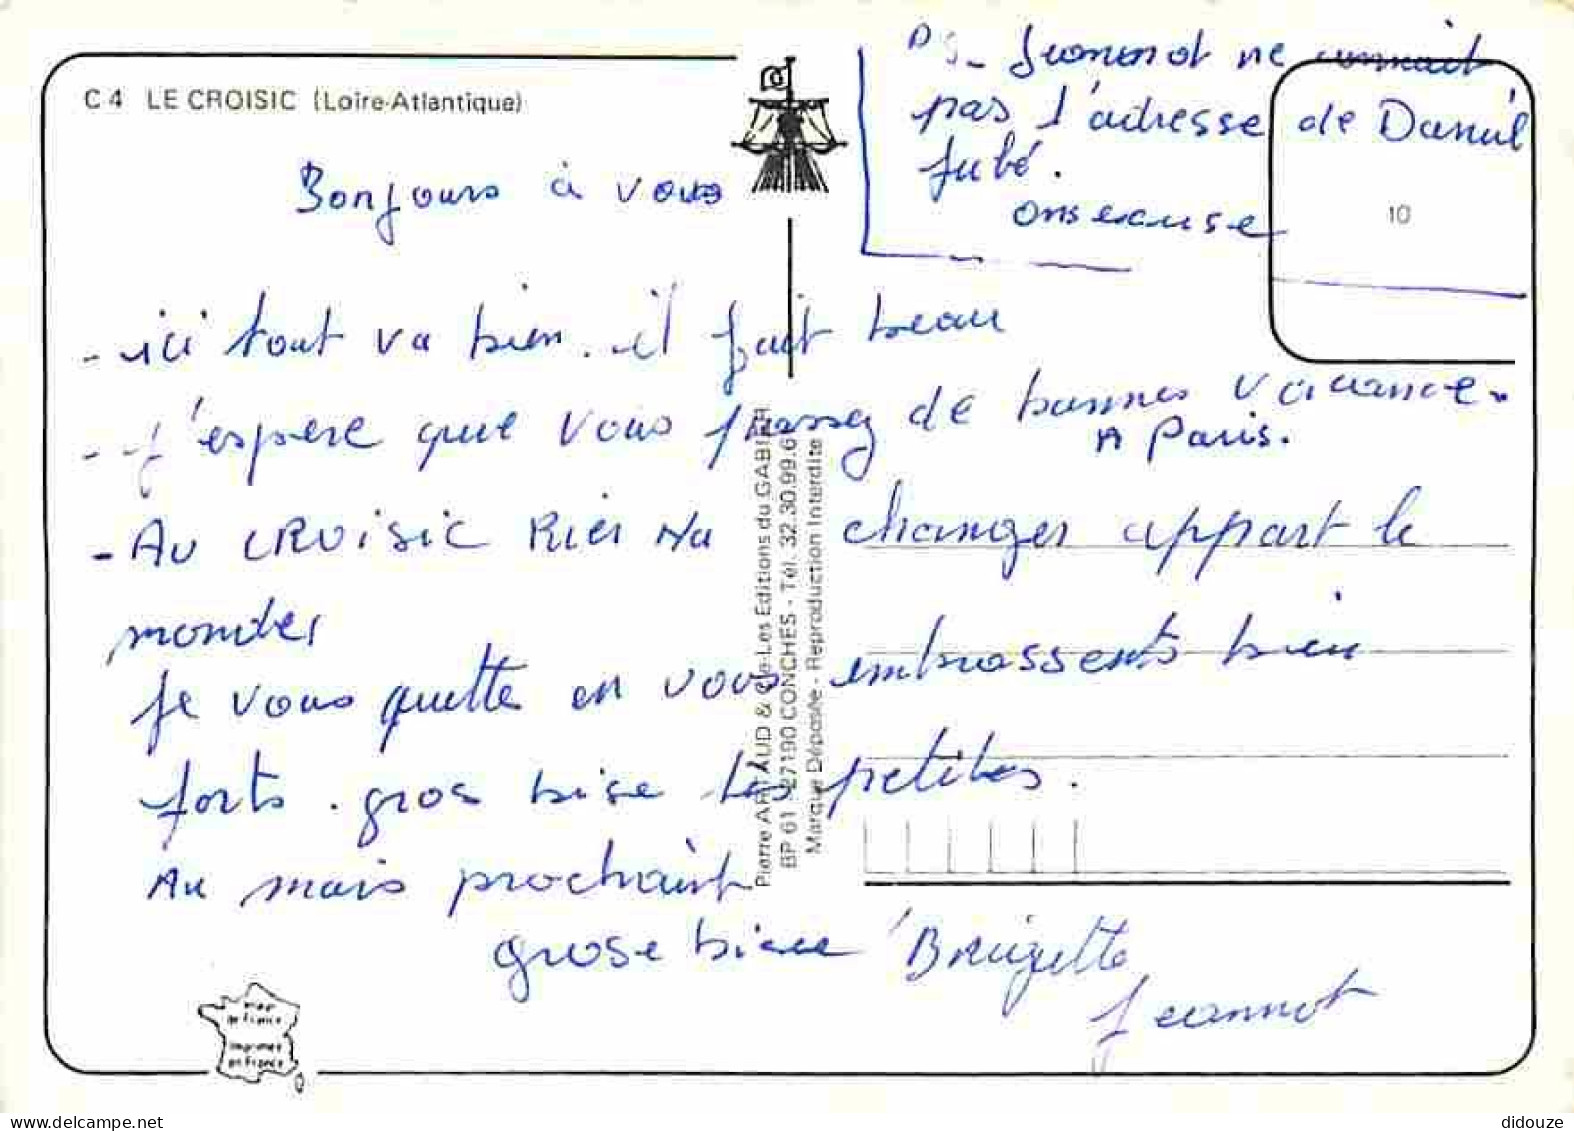 C 4 LE CROISIC (Loire-Atlantique)
PS - Jeannot ne connait
pas l'adresse de Daniel
Jubé.
on s'excuse
10
Bonjours à vous
- ici tout va bien. il fait beau
- j'espere que vous passez de bonnes vacance -
A Paris.
- Au CROISIC Rien Na changer appart le
monder
je vous quette en vous embrassents bien
forts. gros bise les petites.
Au mois prochaint
grose bise Brigette
Jeannot
Pierre ARTAUD & Cie-Les Editions du GABIER
BP 61 - 27190 CONCHES - Tél. 32.30.99.6
Marque Déposée - Reproduction Interdite
de France
Imprimée
en France
didouze